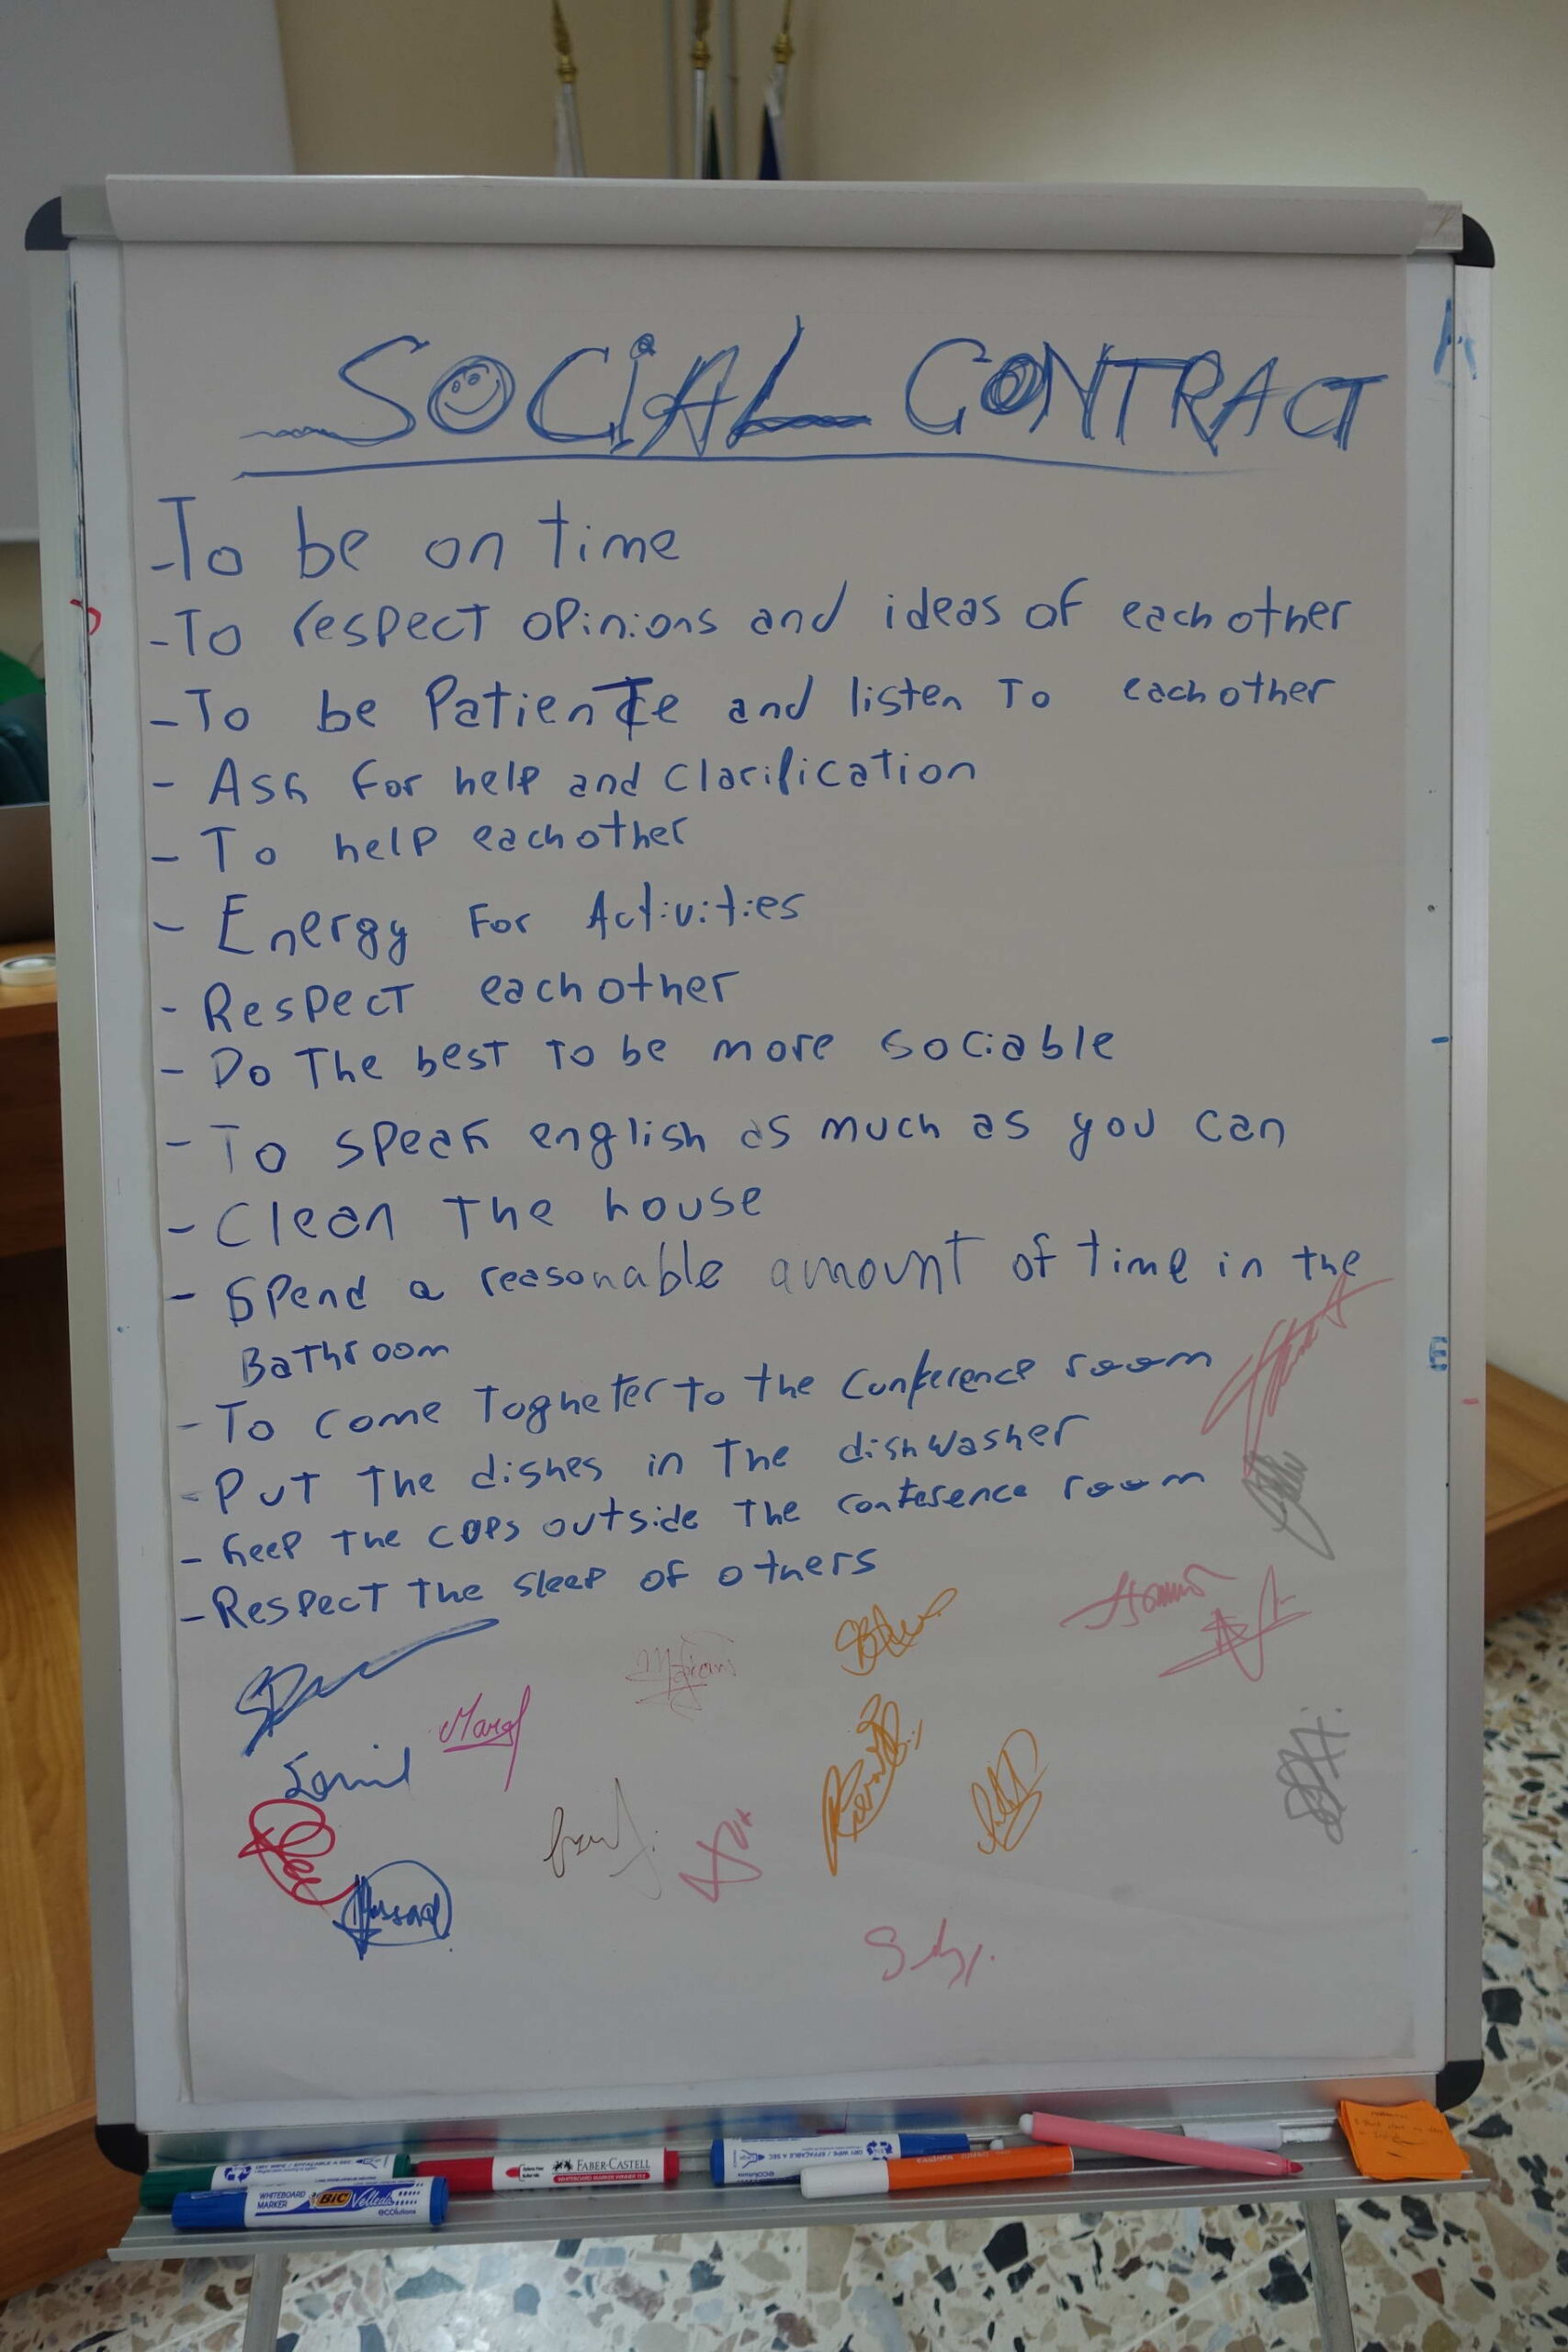 SOCiAL CONTRACT
-To be on time
-To respect opinions and ideas of eachother
-To be PatienTe and listen To eachother
- Ask for help and Clarification
- To help eachother
- Energy For Activities
- Respect eachother
- Do The best To be more sociable
- To speak english as much as you can
- Clean The house
- Spend a reasonable amount of time in the
Bathroom
- To come Togheter to the Conference room
- Put The dishes in The dishwasher
- Keep the cops outside The conference room
- Respect the sleep of others
Maraf
Hassan
FABER-CASTELL
WHITEBOARD MARKER
BIC Velleda
ecolutions